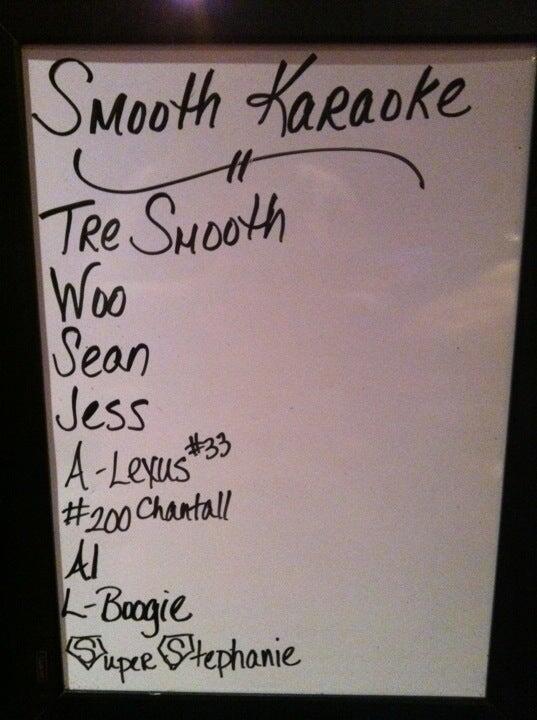 Smooth Karaoke
Tre Smooth
Woo
Sean
Jess
A-Lexus #33
#200 Chantall
Al
L-Boogie
Super Stephanie